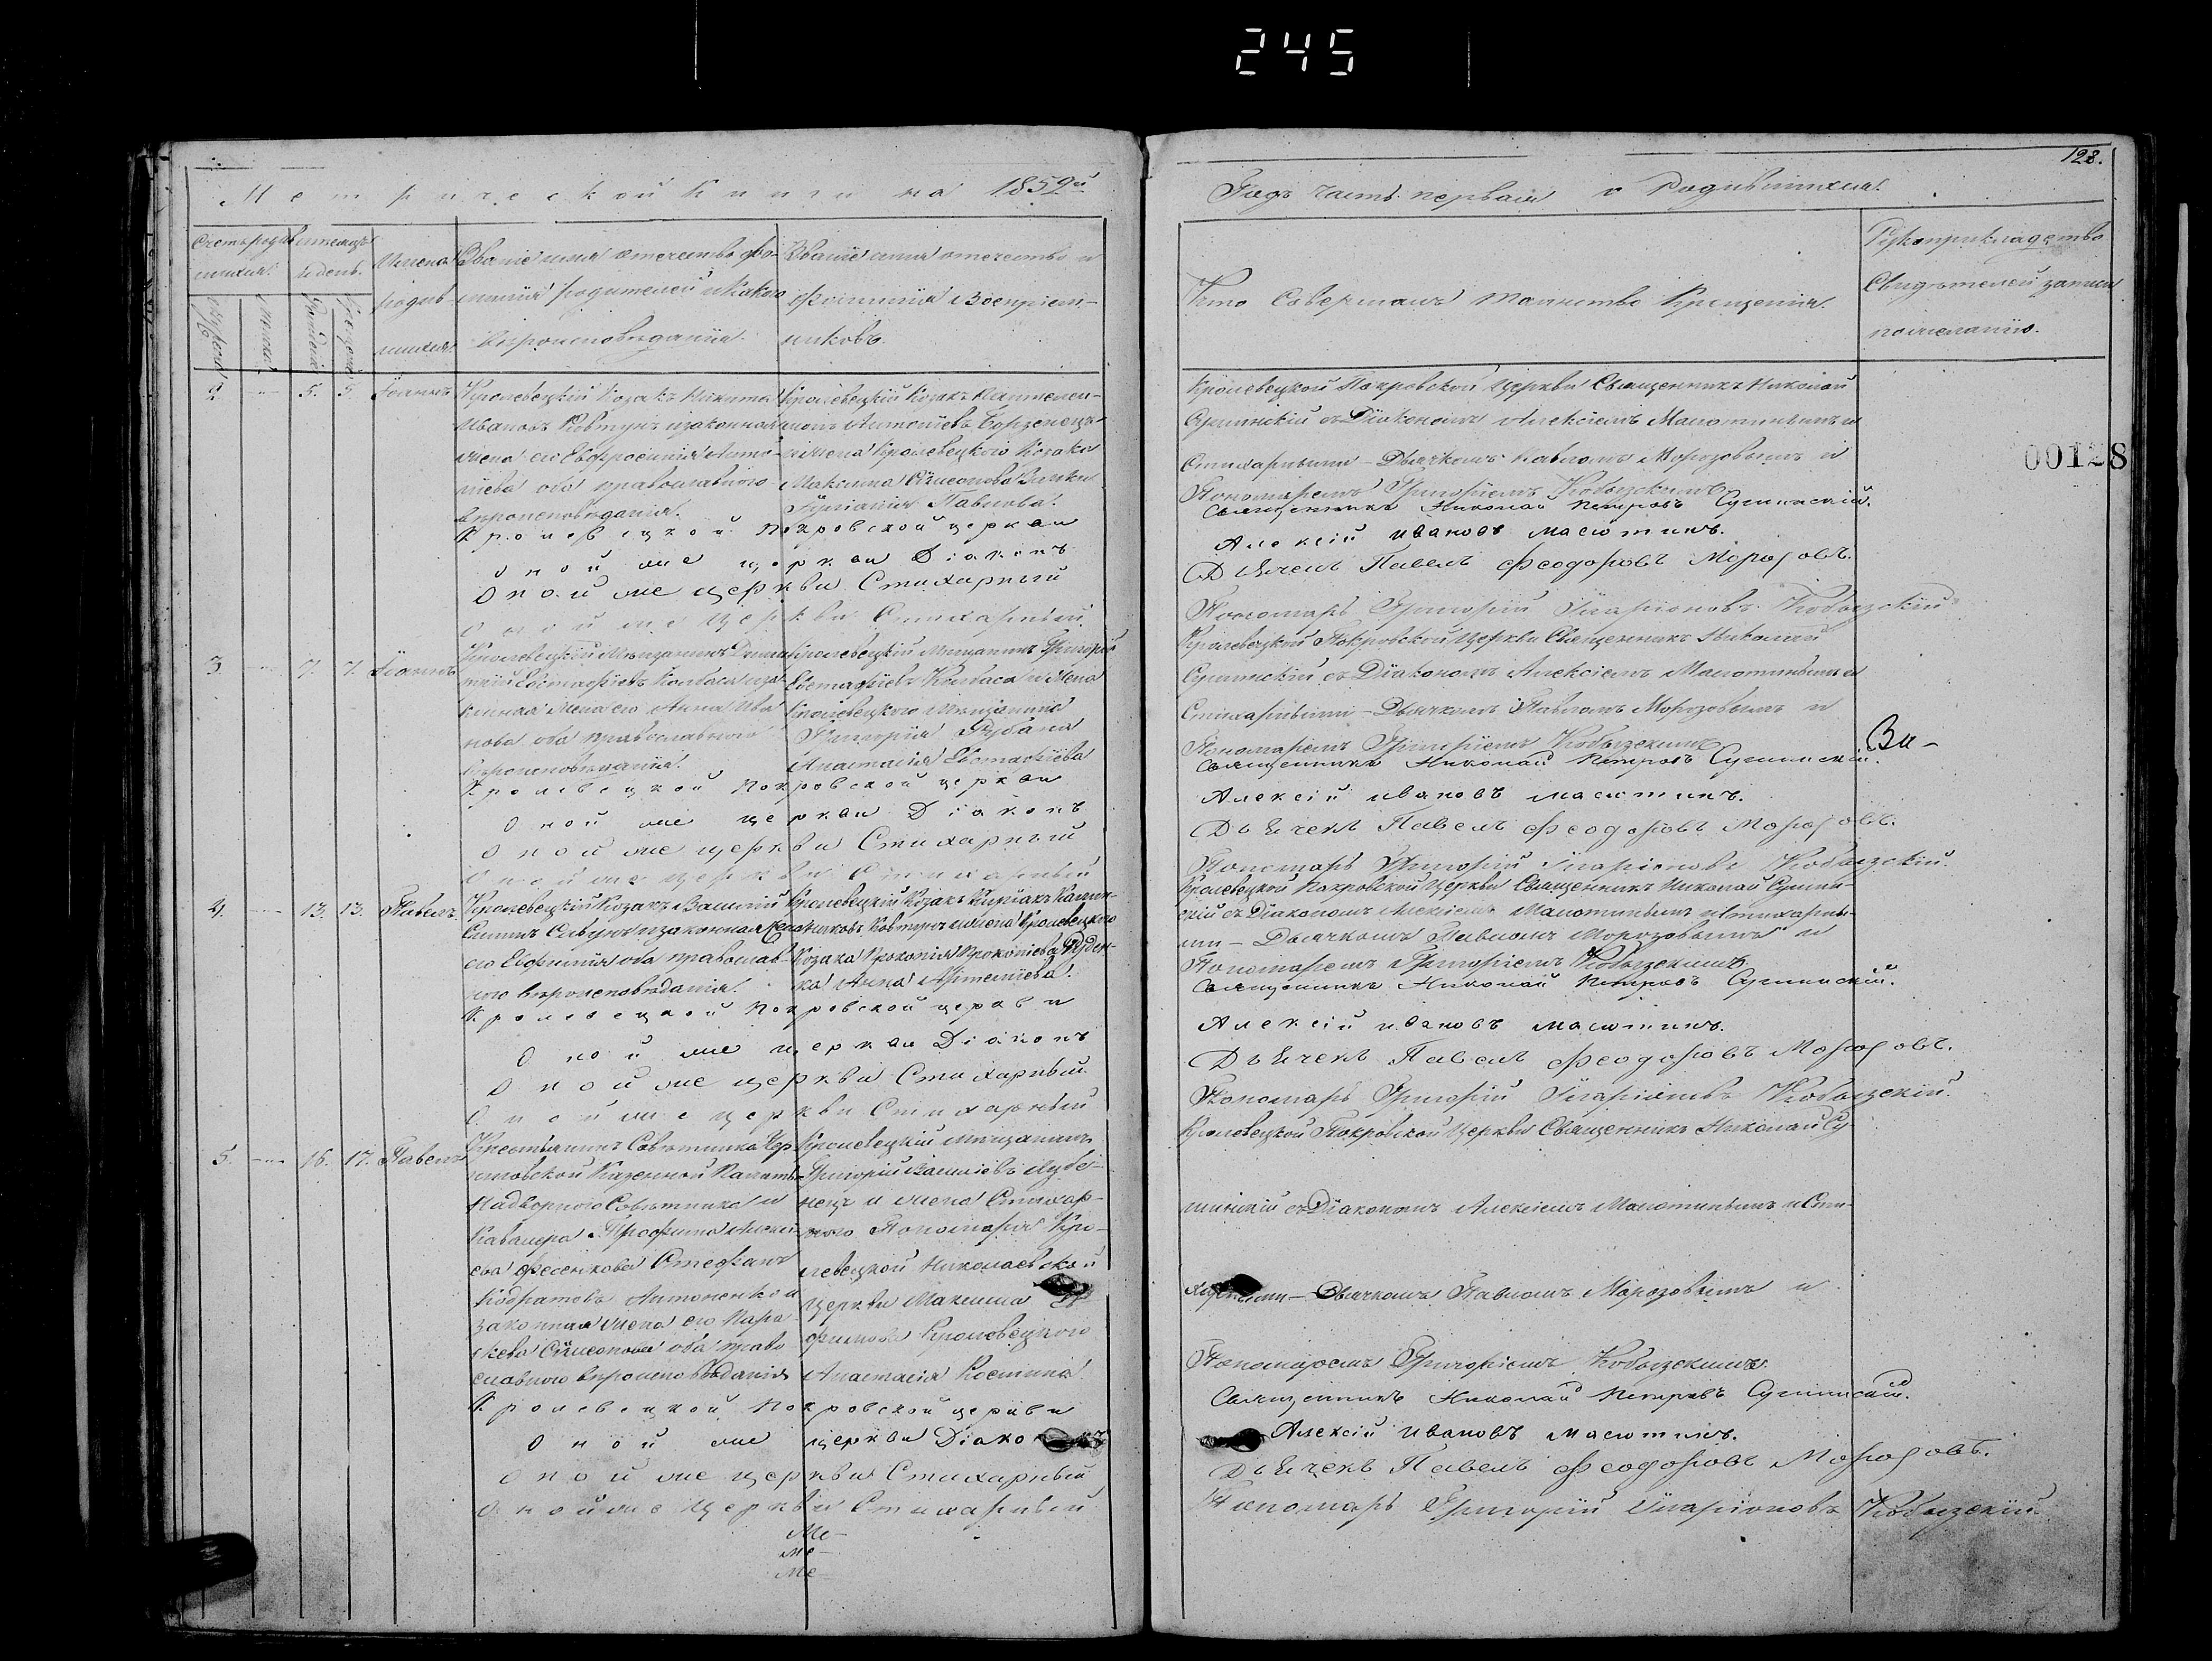 245
128.
Метрической Книги на 1852й
Годъ часть первая о Родившихся.
Счетъ родившихся.
Мѣсяцъ и день.
Имена родившихся.
Званіе имя отечество фамилія родителей и какого вѣроисповѣданія.
Званіе имя отечество и фамилія Воспріемниковъ.
Кто Совершалъ таинство Крещенія.
Рукоприкладство Свидѣтелей записи по желанію.
2. 5. 5. Іоаннъ
Кролевецкій Козакъ Никита
Ивановъ Ковтунъ и законная
жена его Евфросинія Анто-
ніева оба православного
вѣроисповѣданія.
Кролевецкій Козакъ
Антоніевъ
и жена Кролевецкого Козака
Максима Сѵмеонова
Іуліанія Павлова.
Кролевецкой Покровской Церкви Священникъ Николай
Сушинскій съ Діакономъ Алексіемъ Масютинымъ и
Стихарными – Дьячкомъ Павломъ Морозовымъ и
Пономаремъ Григоріемъ Кобызскимъ.
Кролевецкой Покровской церкви Священникъ Николай Петровъ Сушинскій.
Оной же церкви Діаконъ Алексій Ивановъ Масютинъ.
Оной же церкви Стихарный Дьячекъ Павелъ Феодоровъ Морозовъ.
Оной же Церкви Стихарный Пономарь Григорій Иларіоновъ Кобызскій
00128
3. 7. 7. Іоаннъ
Кролевецкій Мѣщанинъ Дими-
трій Евстафіевъ Колбаса и за-
конная жена его Анна Ива-
нова оба православного
вѣроисповѣданія.
Кролевецкій Мѣщанинъ Григорій
Евстафіевъ Колбаса и Жена
Кролевецкого Мѣщанина
Григорія Рубана
Анастасія Евстафіева
Кролевецкой Покровской Церкви Священникъ Николай
Сушинскій съ Діакономъ Алексіемъ Масютинымъ и
Стихарными – Дьячкомъ Павломъ Морозовымъ и
Пономаремъ Григоріемъ Кобызскимъ
Кролевецкой Покровской церкви Священникъ Николай Петровъ Сушинскій.
Оной же церкви Діаконъ Алексій Ивановъ Масютинъ.
Оной же церкви Стихарный Дьячекъ Павелъ Феодоровъ Морозовъ.
Оной же церкви Стихарный Пономарь Григорій Иларіоновъ Кобызскій.
4. 13. 13. Павелъ
Кролевецкій Козакъ Василій
и законная жена
его Евфимія оба православ-
ного вѣроисповѣданія.
Кролевецкій Козакъ Киріакъ
Ковтунъ и жена Кролевецкого
Козака Прокопія Прокопіева
Анна Артеміева.
Кролевецкой Покровской Церкви Священникъ Николай Сушин-
скій съ Діакономъ Алексіемъ Масютинымъ и Стихарны-
ми – Дьячкомъ Павломъ Морозовымъ и
Пономаремъ Григоріемъ Кобызскимъ.
Кролевецкой Покровской церкви Священникъ Николай Петровъ Сушинскій.
Оной же церкви Діаконъ Алексій Ивановъ Масютинъ.
Оной же церкви Стихарный Дьячекъ Павелъ Феодоровъ Морозовъ.
Оной же церкви Стихарный Пономарь Григорій Иларіоновъ Кобызскій.
5. 16. 17. Павелъ
Крестьянинъ Совѣтника Чер-
ниговской Казенной Палаты
Надворного Совѣтника и
Кавалера Трофима Алексі-
ева Фесенкова Стефанъ
Кодратовъ Антоненко и
законная жена его Пара-
скева Сѵмеонова оба право-
славного вѣроисповѣданія
Кролевецкій мѣщанинъ
Григорій Василіевъ
и жена Стихар-
ного Пономаря Кро-
левецкой Николаевской
Церкви Максима
Кролевецкого
Анастасія Костина
Кролевецкой Покровской Церкви Священникъ Николай Су-
шинскій съ Діакономъ Алексіемъ Масютинымъ и Сти-
харными – Дьячкомъ Павломъ Морозовымъ и
Пономаремъ Григоріемъ Кобызскимъ.
Кролевецкой Покровской церкви Священникъ Николай Петровъ Сушинскій.
Оной же церкви Діаконъ Алексій Ивановъ Масютинъ.
Оной же церкви Стихарный Дьячекъ Павелъ Феодоровъ Морозовъ.
Оной же Церкви Стихарный Пономарь Григорій Иларіоновъ Кобызскій.
Ме-
Ме-
Ме-